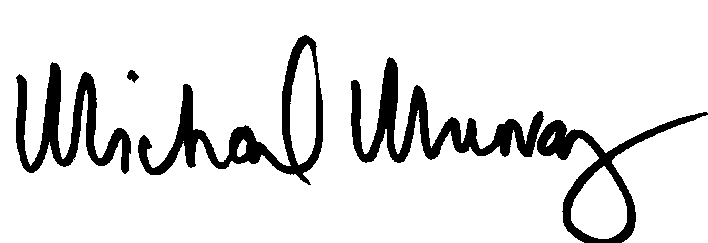 Michael Murray